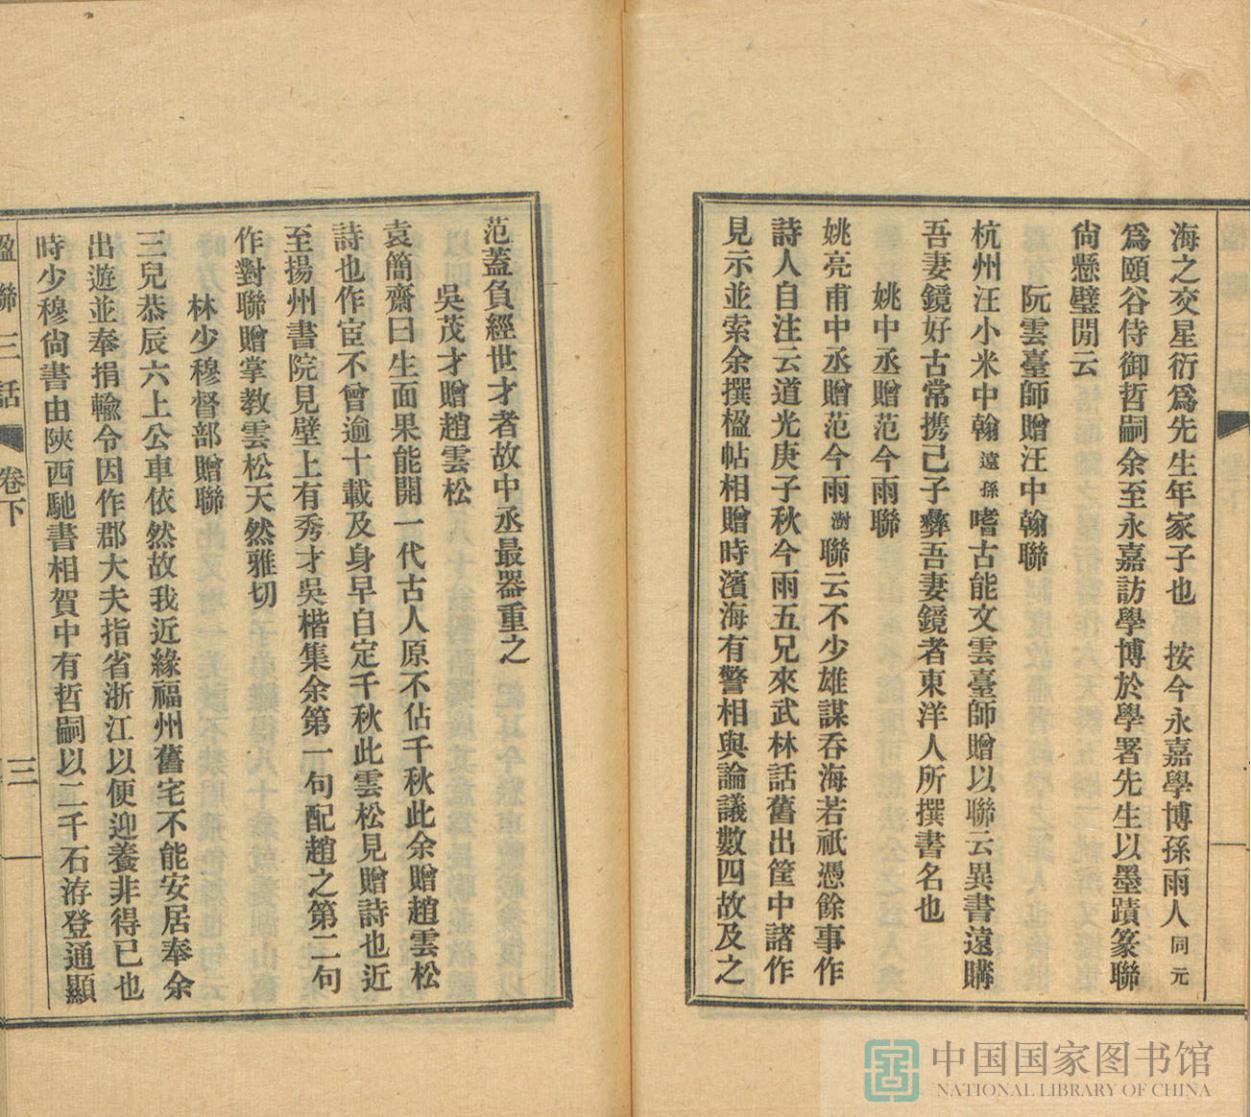 海之交星衍爲先生年家子也　按今永嘉學博孫雨人同元
爲頤谷侍御哲嗣余至永嘉訪學博於學署先生以墨蹟篆聯
尙懸壁閒云
阮雲臺師贈汪中翰聯
杭州汪小米中翰遠孫嗜古能文雲臺師贈以聯云異書遠購
吾妻鏡好古常携己子彝吾妻鏡者東洋人所撰書名也
姚中丞贈范今雨聯
姚亮甫中丞贈范今雨澍聯云不少雄謀呑海若祇憑餘事作
詩人自注云道光庚子秋今雨五兄來武林話舊出筐中諸作
見示並索余撰楹帖相贈時濱海有警相與論議數四故及之
范蓋負經世才者故中丞最器重之
吳茂才贈趙雲松
袁簡齋曰生面果能開一代古人原不佔千秋此余贈趙雲松
詩也作宦不曾逾十載及身早自定千秋此雲松見贈詩也近
至揚州書院見壁上有秀才吳楷集余第一句配趙之第二句
作對聯贈掌教雲松天然雅切
林少穆督部贈聯
三兒恭辰六上公車依然故我近緣福州舊宅不能安居奉余
出遊並奉捐輸令因作郡大夫指省浙江以便迎養非得已也
時少穆尙書由陝西馳書相賀中有哲嗣以二千石洊登通顯
楹聯三話　卷下　三
中国国家图书馆
NATIONAL LIBRARY OF CHINA